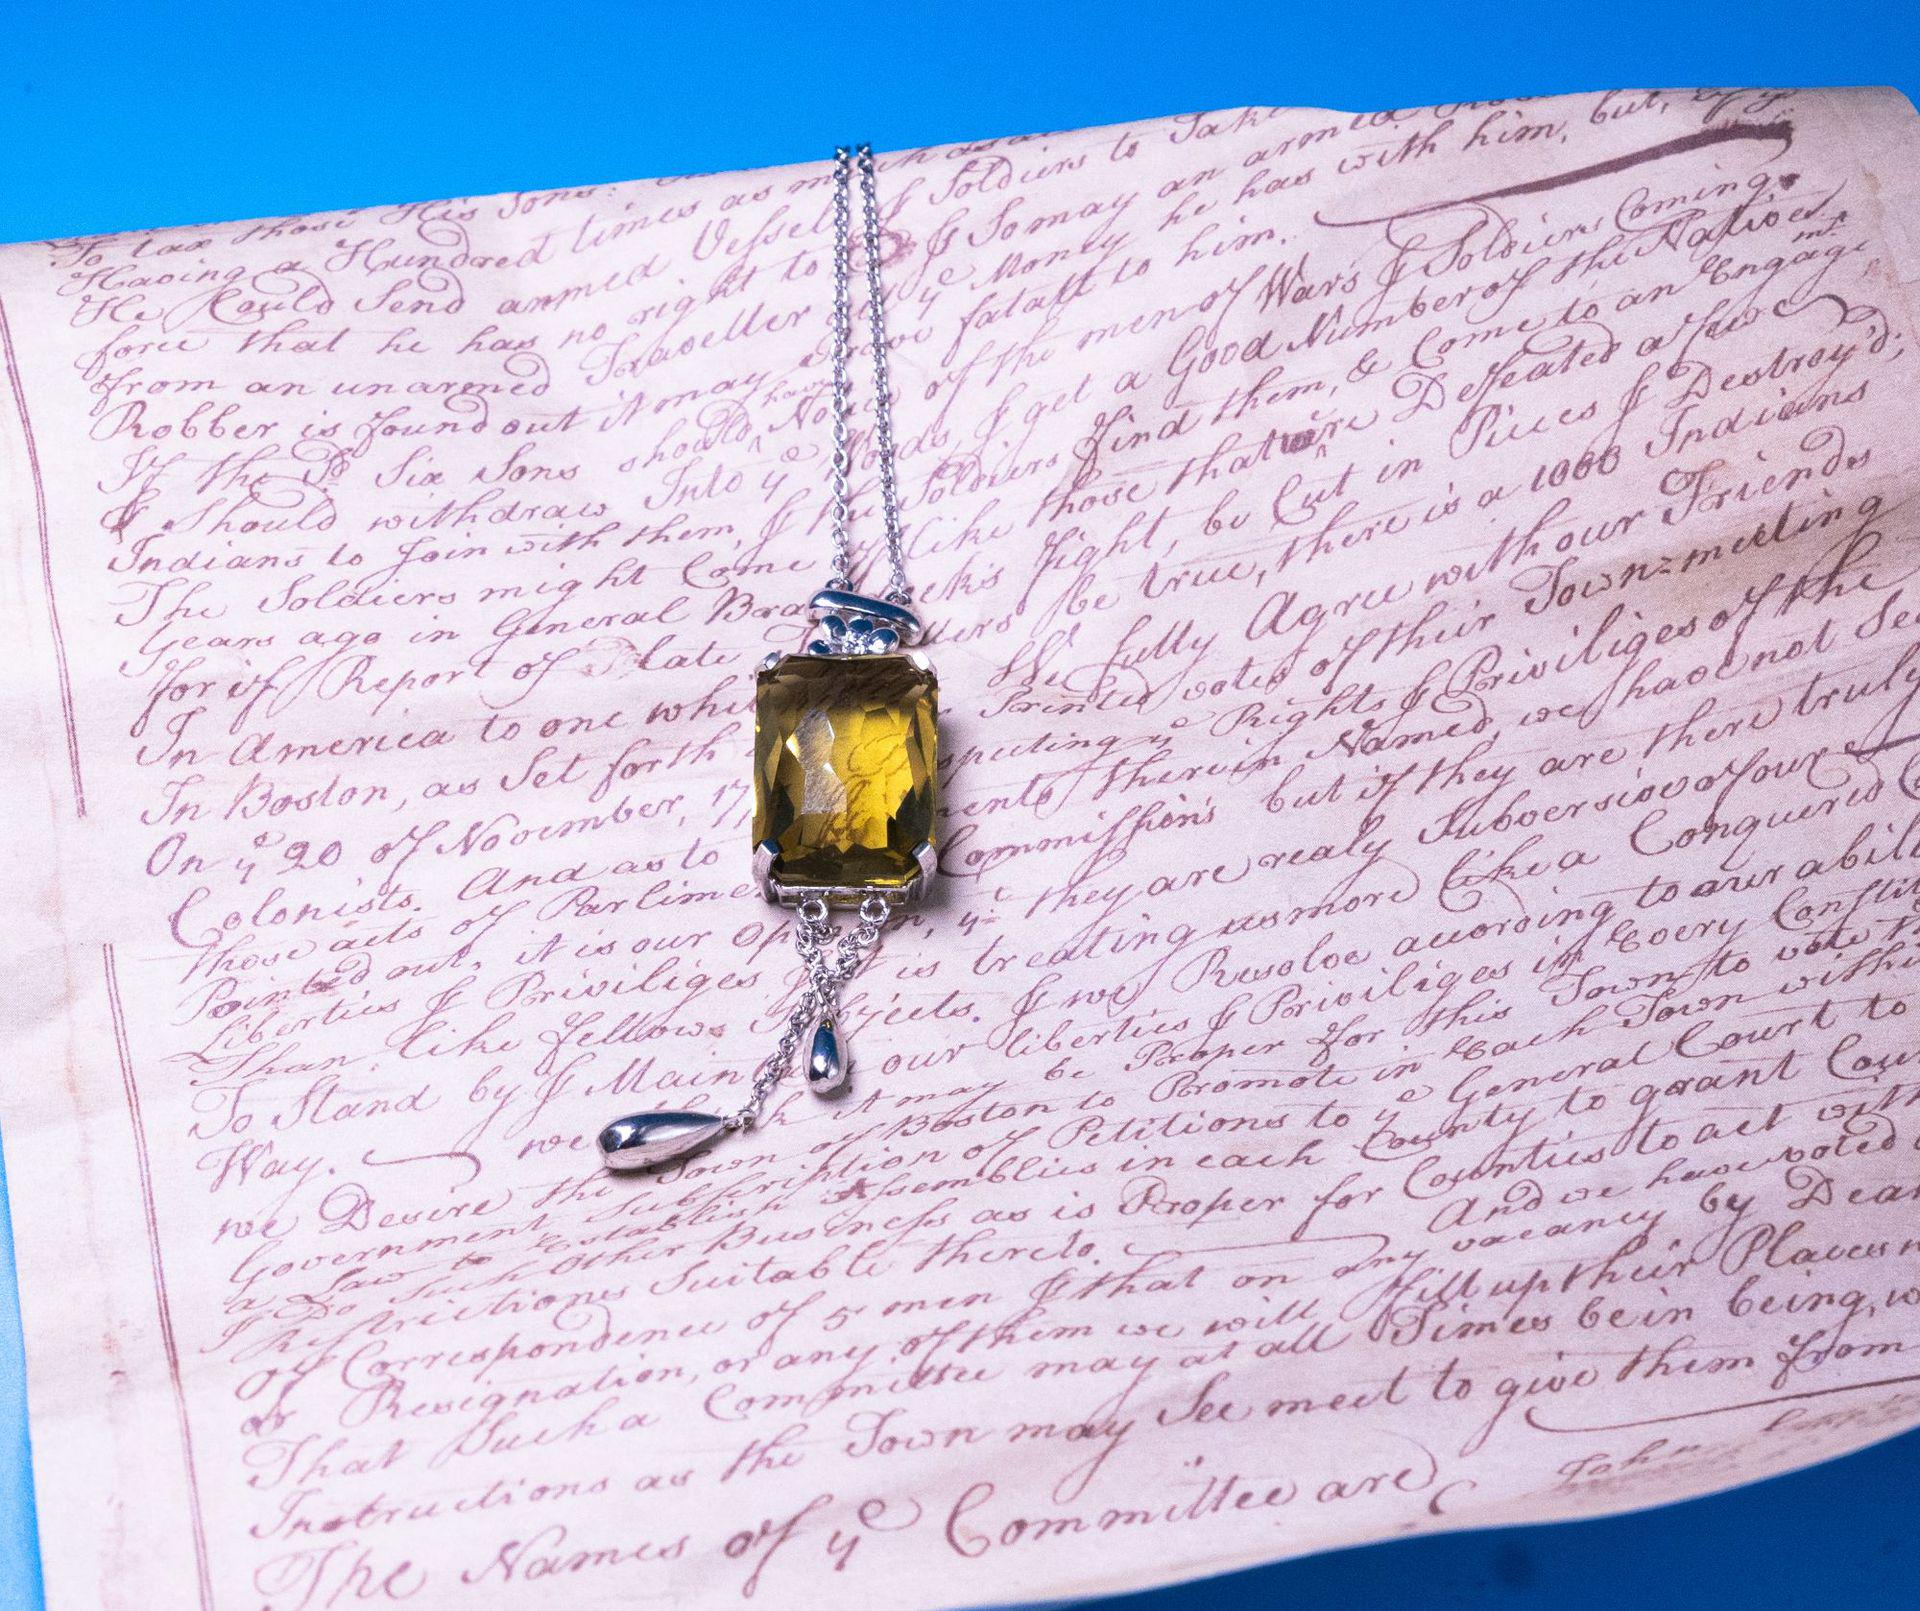 To tax those His Sons:
Having a Hundred times as much as a
He Could Send armed Vessels & Soldiers to Take
force that he has no right to & Somay an armed
from an unarmed Traveller all yᵉ Money he has with him, but, if yᵉ
Robber is found out it may prove fatall to him.
If the Sᵈ Six Sons should have Notice of the men of Wars & Soldiers Coming
& Should withdraw Into yᵉ Woods, & get a Good Number of the Natives
Indians to Join with them, & the Soldiers find them, & Come to an Engagemᵗ
The Soldiers might Come of like those that were Deffeated a fue
years ago in General Bra eks fight, be Cut in Pieces & Destroy'd;
for if Report of late ders be true, there is a 1000 Indians
In America to one whi We fully Agree with our Friends
In Boston, as Set forth Printed votes of their Town=meeting
On yᵉ 20 of November, 17 specting yᵉ Rights & Priviliges of the
Colonists. And as to ments therein Named, we have not See
those acts of Parlime Commissions but if they are there truly
Pointed out, it is our Op n, yᵗ they are realy Subversive of our
Liberties & Priviliges & is treating us more like a Conquered
Than like fellow Subjects. & we Resolve according to our abili
To Stand by & Main our liberties & Priviliges in Every Conflit
Way. we it may be Proper for this Town to vote
we Desire the Town of Boston to Promote in Each Town within
Government Subscription of Petitions to yᵉ General Court to
a Law to Establish Assemblies in each County to grant Cou
& Do Such Other Business as is Proper for Counties to act with
Restrictions Suitable thereto. And we have voted
of Correspondence of 5 men & that on any vacancy by Dea
or Resignation, or any of them we will fill up their Places
That Such a Committee may at all Times be in being, w
Instructions as the Town may See meet to give them from
The Names of yᵉ Committee are
John